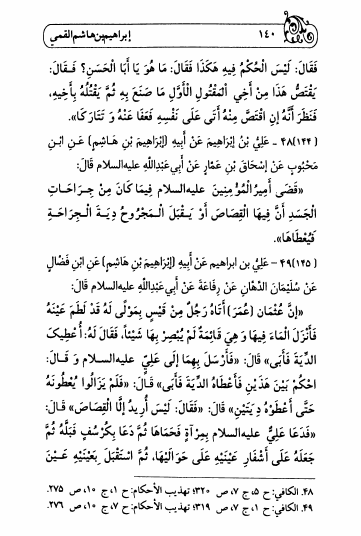 ابراهیم بن هاشم القمي
١٤٠
فَقَالَ: لَيْسَ الْحُكْمُ فِيهِ هَكَذَا فَقَالَ: مَا هُوَ يَا أَبَا الْحَسَنِ؟ فَقَالَ:
يَقْتَصُّ هَذَا مِنْ أَخِي الْمَقْتُولِ الْأَوَّلِ مَا صَنَعَ بِهِ ثُمَّ يَقْتُلُهُ بِأَخِيهِ،
فَنَظَرَ أَنَّهُ إِنِ اقْتَصَّ مِنْهُ أَتَى عَلَى نَفْسِهِ فَعَفَا عَنْهُ وَ تَتَارَكَا».
(١٤٤) ٤٨- عَلِيُّ بْنُ إِبْرَاهِيمَ عَنْ أَبِيهِ (إِبْرَاهِيمَ بْنِ هَاشِمٍ) عَنِ ابْنِ
مَحْبُوبٍ عَنْ إِسْحَاقَ بْنِ عَمَّارٍ عَنْ أَبِي عَبْدِاللَّهِ عليه‌السلام قَالَ:
«قَضَى أَمِيرُ الْمُؤْمِنِينَ عليه‌السلام فِيمَا كَانَ مِنْ جِرَاحَاتِ
الْجَسَدِ أَنَّ فِيهَا الْقِصَاصَ أَوْ يَقْبَلَ الْمَجْرُوحُ دِيَةَ الْجِرَاحَةِ
فَيُعْطَاهَا».
(١٤٥) ٤٩- عَلِيُّ بن ابراهيم عَنْ أَبِيهِ (إِبْرَاهِيمَ بْنِ هَاشِمٍ) عَنِ ابْنِ فَضَّالٍ
عَنْ سُلَيْمَانَ الدَّهَّانِ عَنْ رِفَاعَةَ عَنْ أَبِي عَبْدِاللَّهِ عليه‌السلام قَالَ:
«إِنَّ عُثْمَان (عُمَرَ) أَتَاهُ رَجُلٌ مِنْ قَيْسٍ بِمَوْلًى لَهُ قَدْ لَطَمَ عَيْنَهُ
فَأَنْزَلَ الْمَاءَ فِيهَا وَ هِيَ قَائِمَةٌ لَمْ يُبْصِرْ بِهَا شَيْئاً، فَقَالَ لَهُ: أُعْطِيكَ
الدِّيَةَ فَأَبَى» قَالَ: «فَأَرْسَلَ بِهِمَا إِلَى عَلِيٍّ عليه‌السلام وَ قَالَ:
احْكُمْ بَيْنَ هَذَيْنِ فَأَعْطَاهُ الدِّيَةَ فَأَبَى» قَالَ: «فَلَمْ يَزَالُوا يُعْطُونَهُ
حَتَّى أَعْطَوْهُ دِيَتَيْنِ» قَالَ: «فَقَالَ: لَيْسَ أُرِيدُ إِلَّا الْقِصَاصَ» قَالَ:
«فَدَعَا عَلِيٌّ عليه‌السلام بِمِرْآةٍ فَحَمَاهَا ثُمَّ دَعَا بِكُرْسُفٍ فَبَلَّهُ ثُمَّ
جَعَلَهُ عَلَى أَشْفَارِ عَيْنَيْهِ عَلَى حَوَالَيْهَا، ثُمَّ اسْتَقْبَلَ بِعَيْنَيْهِ عَيْنَ
٤٨. الكافي: ح ٥، ج ٧، ص ٣٢٠؛ تهذيب الأحكام: ح ١، ج ١٠، ص ٢٧٥.
٤٩. الكافي: ح ١، ج ٧، ص ٣١٩؛ تهذيب الأحكام: ح ٧، ج ١٠، ص ٢٧٦.